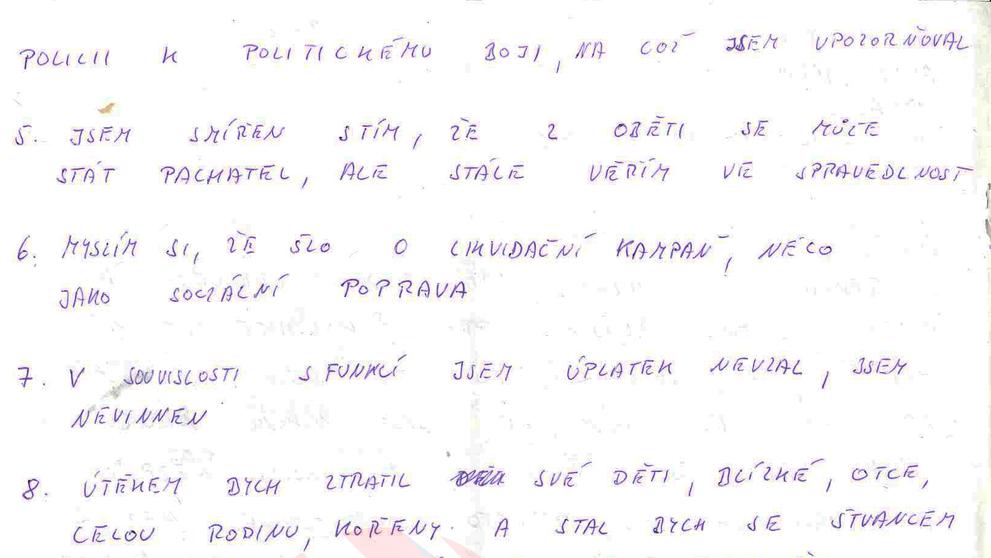 POLICII K POLITICKÉMU BOJI, NA COŽ JSEM UPOZORŇOVAL
5. JSEM SMÍŘEN S TÍM, ŽE Z OBĚTI SE MŮŽE
STÁT PACHATEL, ALE STÁLE VĚŘÍM VE SPRAVEDLNOST
6. MYSLÍM SI, ŽE ŠLO O LIKVIDAČNÍ KAMPAŇ, NĚCO
JAKO SOCIÁLNÍ POPRAVA
7. V SOUVISLOSTI S FUNKCÍ JSEM ÚPLATEK NEVZAL, JSEM
NEVINNEN
8. ÚTĚKEM BYCH ZTRATIL SVÉ DĚTI, BLÍZKÉ, OTCE,
CELOU RODINU, KOŘENY. A STAL BYCH SE ŠTVANCEM